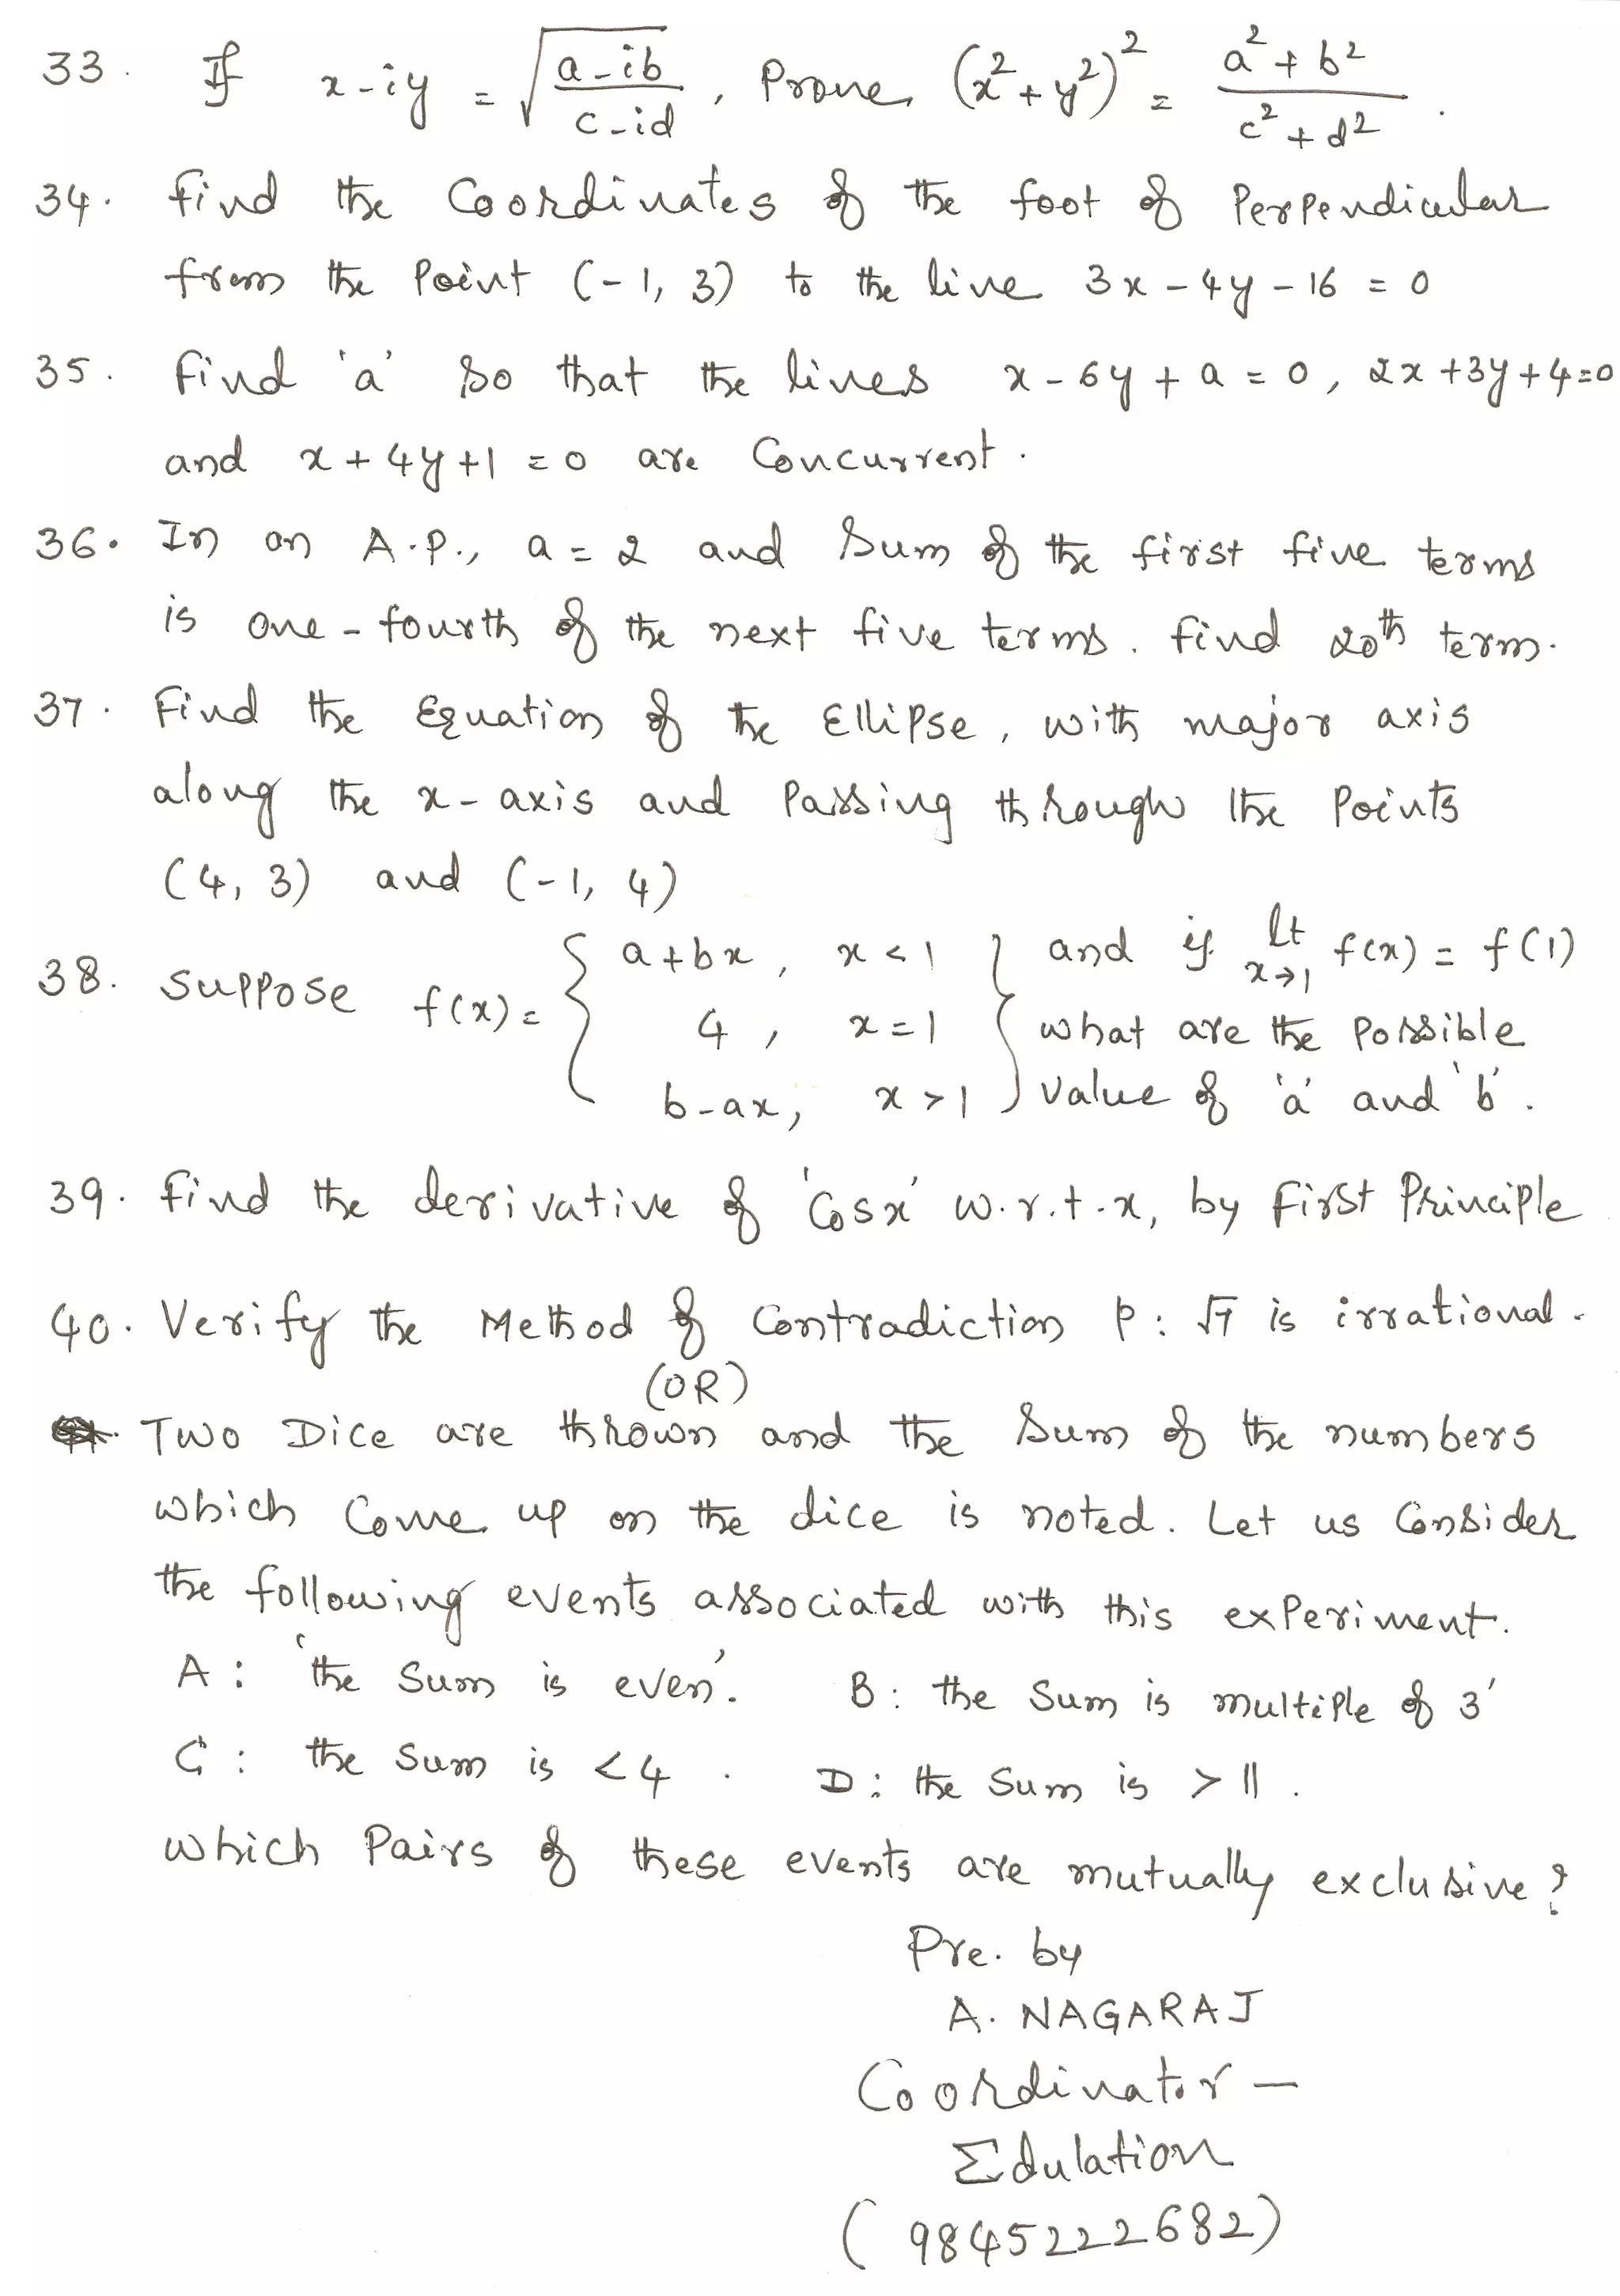 33. If x-iy = √(a-ib / c-id), Prove (x²+y²)² = a²+b² / c²+d².
34. Find the Coordinates of the foot of Perpendicular
from the Point (-1, 3) to the line 3x-4y-16 = 0
35. Find 'a' so that the lines x-6y+a = 0, 2x+3y+4=0
and x+4y+1 = 0 are Concurrent.
36. In an A.P., a = 2 and Sum of the first five terms
is one-fourth of the next five terms. Find 20th term.
37. Find the Equation of the Ellipse, with major axis
along the x-axis and Passing through the Points
(4, 3) and (-1, 4)
38. Suppose f(x) = { a+bx, x < 1 } and if lt x→1 f(x) = f(1)
4, x = 1 what are the Possible
b-ax, x > 1 value of 'a' and 'b'.
39. Find the derivative of 'Cosx' w.r.t.x, by First Principle
40. Verify the Method of Contradiction P: √7 is irrational.
(OR)
Two Dice are thrown and the Sum of the numbers
which Come up on the dice is noted. Let us Consider
the following events associated with this experiment.
A: 'the Sum is even'. B: the Sum is multiple of 3'
C: the Sum is <4. D: the Sum is > 11.
Which Pairs of these events are mutually exclusive?
Pre. by
A. NAGARAJ
Coordinator –
Edulation
(9845222682)